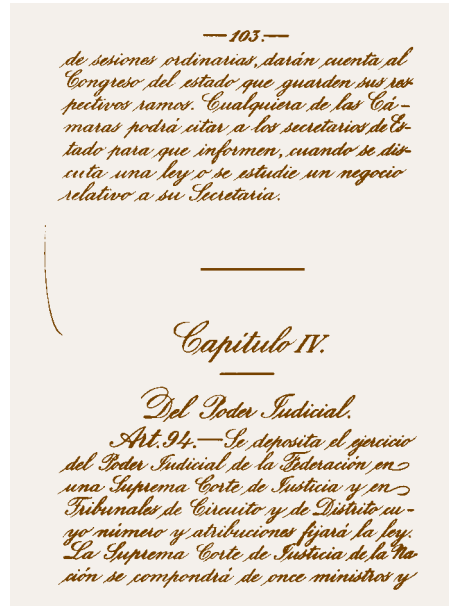 —103.—
de sesiones ordinarias, darán cuenta al
Congreso del estado que guarden sus res
pectivos ramos. Cualquiera de las Cá-
maras podrá citar a los secretarios de Es-
tado para que informen, cuando se dis-
cuta una ley o se estudie un negocio
relativo a su Secretaría.
Capítulo IV.
Del Poder Judicial.
Art. 94.—Se deposita el ejercicio
del Poder Judicial de la Federación en
una Suprema Corte de Justicia y en
Tribunales de Circuito y de Distrito cu-
yo número y atribuciones fijará la ley.
La Suprema Corte de Justicia de la Na
ción se compondrá de once ministros y